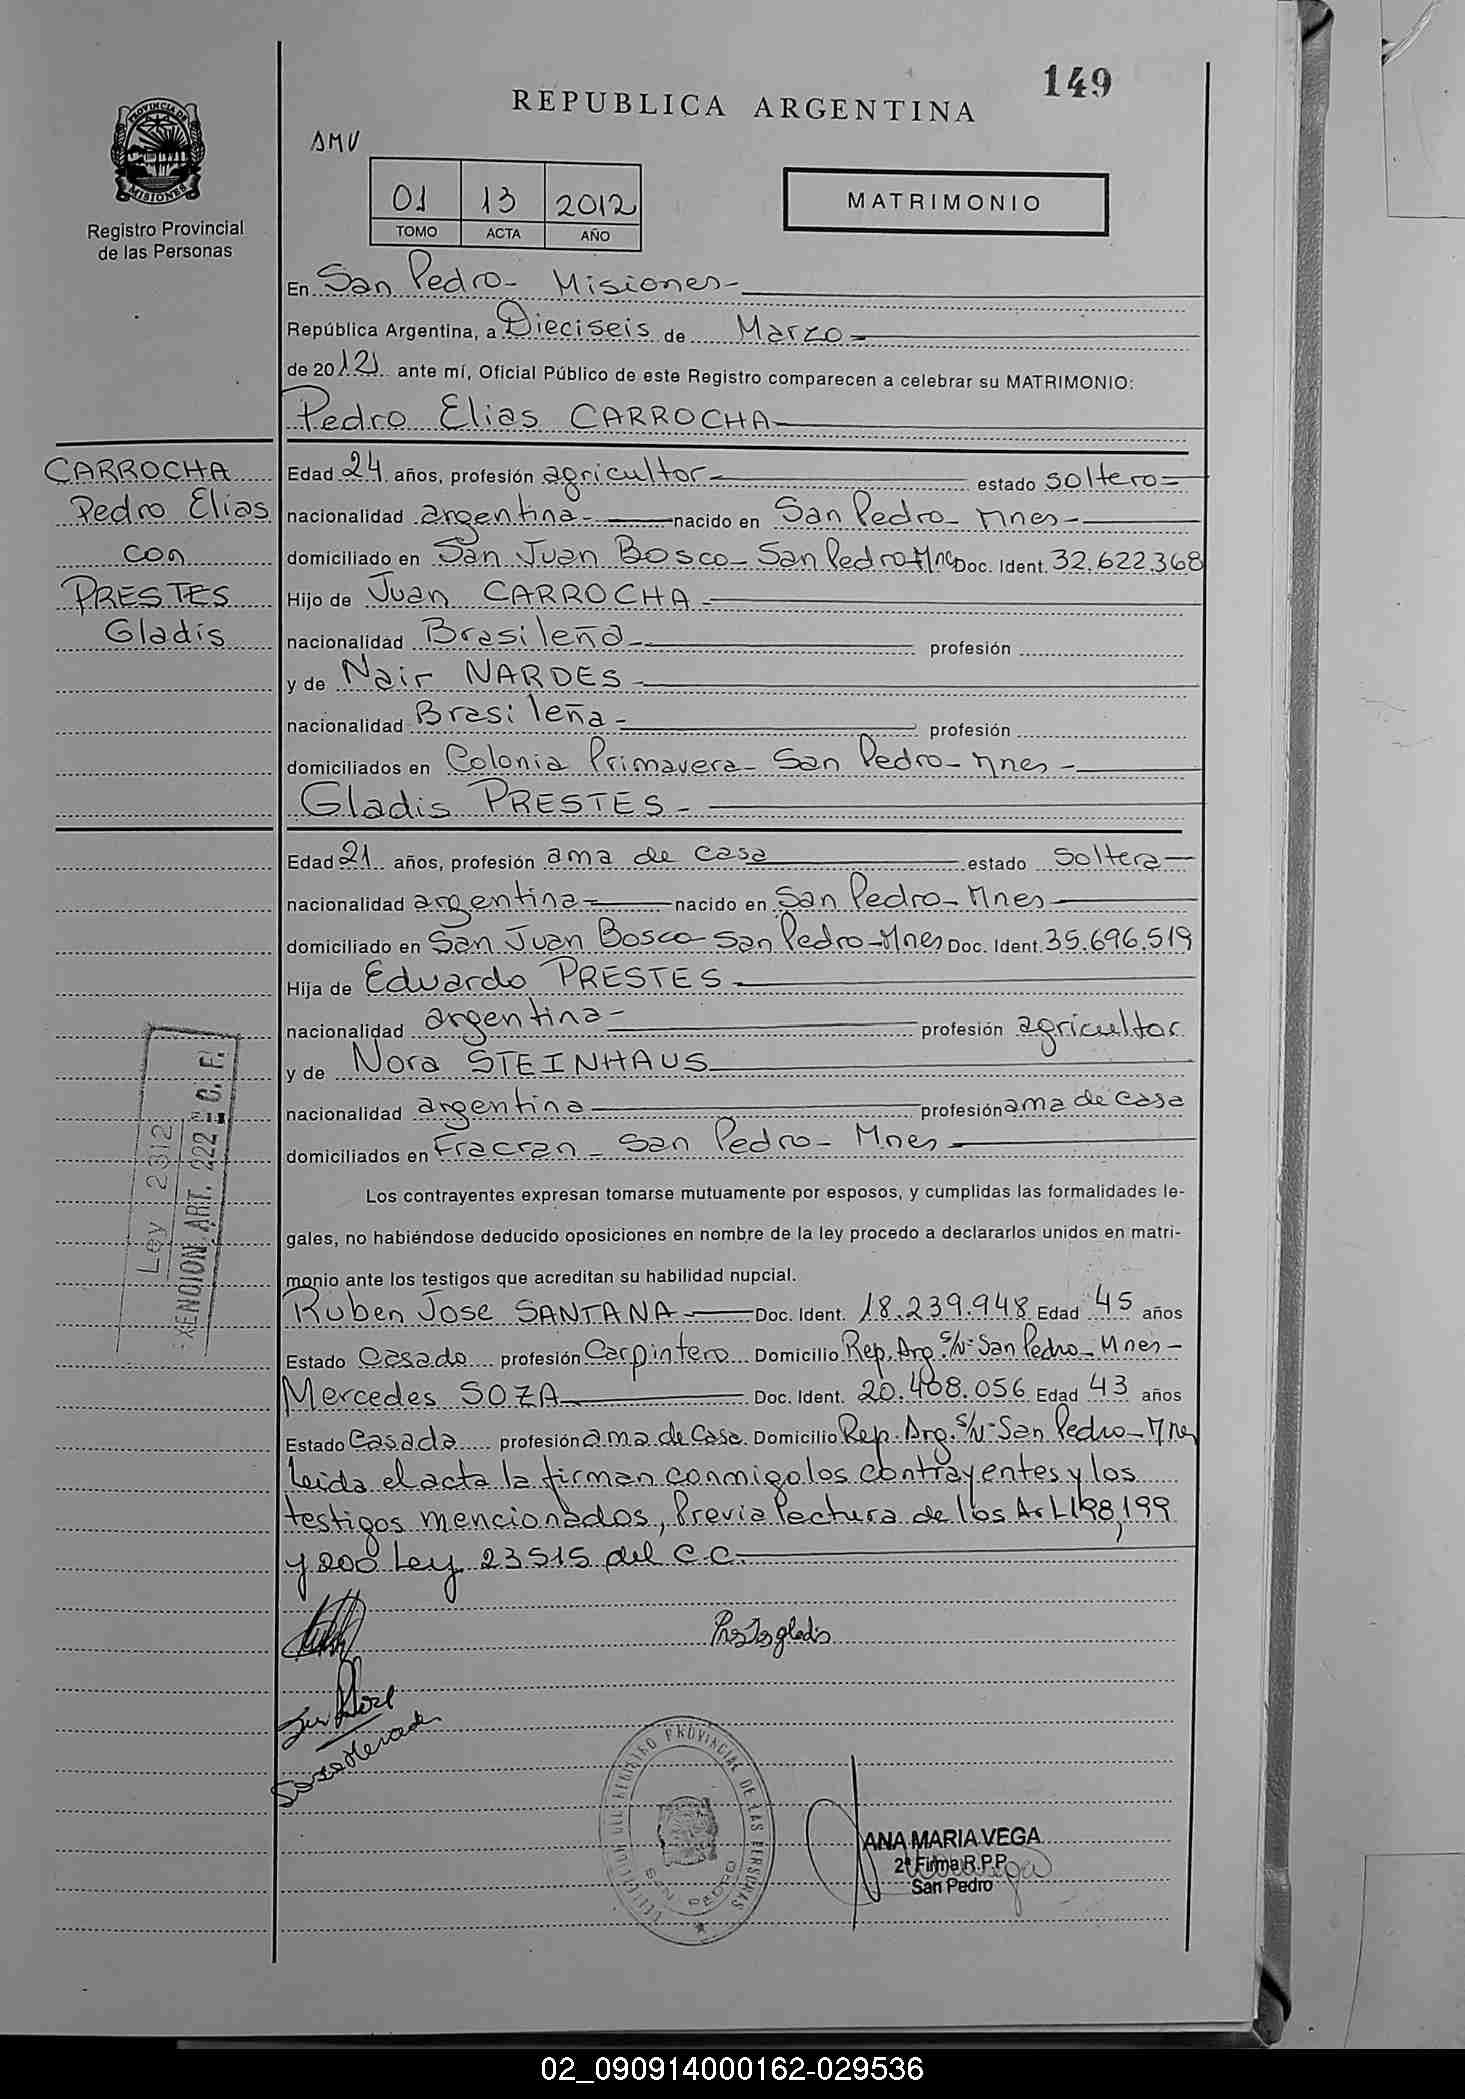 149
REPUBLICA ARGENTINA
PROVINCIA DE MISIONES
Registro Provincial
de las Personas
AMV
01 13 2012
TOMO ACTA AÑO
MATRIMONIO
En San Pedro- Misiones-
República Argentina, a Dieciseis de Marzo-
de 2012 ante mí, Oficial Público de este Registro comparecen a celebrar su MATRIMONIO:
Pedro Elias CARROCHA
CARROCHA
Pedro Elias
con
PRESTES
Gladis
Edad 24 años, profesión agricultor- estado soltero-
nacionalidad argentina- nacido en San Pedro- Mnes-
domiciliado en San Juan Bosco- San Pedro-Mnes Doc. Ident. 32.622.368
Hijo de Juan CARROCHA-
nacionalidad Brasileña- profesión
y de Nair NARDES-
nacionalidad Brasileña- profesión
domiciliados en Colonia Primavera- San Pedro- Mnes-
Gladis PRESTES-
Edad 21 años, profesión ama de casa estado soltera-
nacionalidad argentina- nacido en San Pedro- Mnes-
domiciliado en San Juan Bosco- San Pedro-Mnes Doc. Ident. 35.696.519
Hija de Eduardo PRESTES-
nacionalidad argentina- profesión agricultor
y de Nora STEINHAUS
nacionalidad argentina profesión ama de casa
domiciliados en Fracran- San Pedro- Mnes-
Ley 2312
XENCION ART. 222 - C. F.
Los contrayentes expresan tomarse mutuamente por esposos, y cumplidas las formalidades le-
gales, no habiéndose deducido oposiciones en nombre de la ley procedo a declararlos unidos en matri-
monio ante los testigos que acreditan su habilidad nupcial.
Ruben Jose SANTANA- Doc. Ident. 18.239.948 Edad 45 años
Estado Casado profesión Carpintero Domicilio Rep. Arg. S/N- San Pedro- Mnes-
Mercedes SOZA Doc. Ident. 20.408.056 Edad 43 años
Estado Casada profesión ama de Casa. Domicilio Rep. Arg. S/N- San Pedro- Mnes
Leida el acta la firman conmigo los contrayentes y los
testigos mencionados, Previa lectura de los Art. 198,199
y 200 Ley 23515 del C.C.
Prestes gladis
Soza Mercedes
DELEGACION DEL REGISTRO PROVINCIAL DE LAS PERSONAS
SAN PEDRO
ANA MARIA VEGA
2ª Firma R.P.P.
San Pedro
02_090914000162-029536